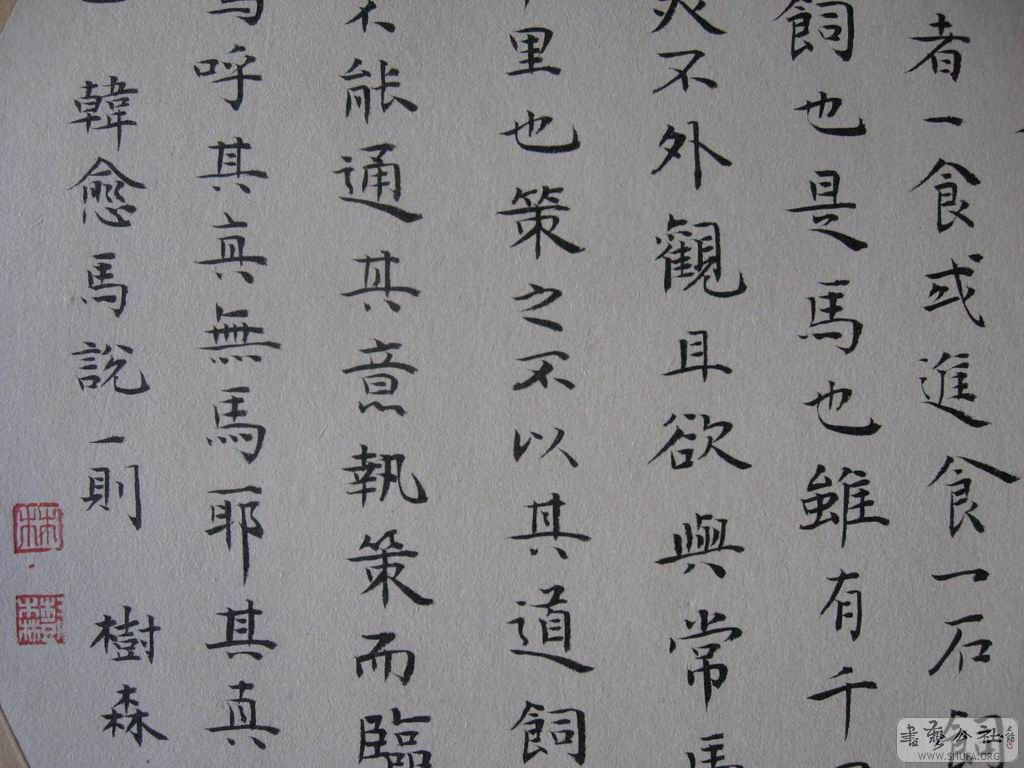 者一食或進食一石飼
飼也是馬也雖有千
不外觀且欲與常馬
里也策之不以其道飼
不能通其意執策而臨
呼其真無馬耶其真
韓愈馬說一則 樹森
書藝公社
WWW.SHUFA.ORG